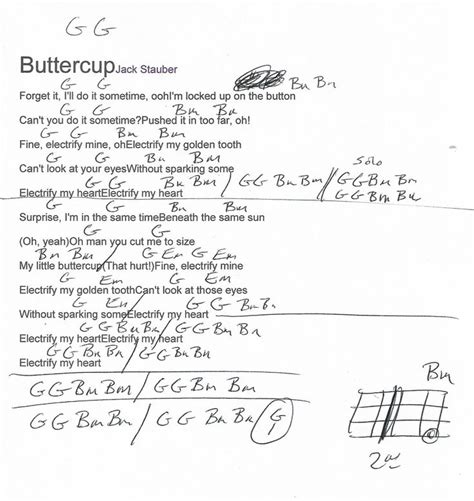 G G
Buttercup Jack Stauber
G G Bm Bm
Forget it, I'll do it sometime, ooh!I'm locked up on the button
G G Bm Bm
Can't you do it sometime?Pushed it in too far, oh!
G G Bm Bm
Fine, electrify mine, ohElectrify my golden tooth
G G Bm Bm Solo
Can't look at your eyesWithout sparking some
G G Bm Bm / G G Bm Bm // G G Bm Bm
Electrify my heartElectrify my heart G G Bm Bm
G G Bm Bm
Surprise, I'm in the same timeBeneath the same sun
G G
(Oh, yeah)Oh man you cut me to size
Bm Bm G Em G Em
My little buttercup(That hurt!)Fine, electrify mine
G Em G
Electrify my golden toothCan't look at those eyes
G Em G G Bm Bm
Without sparking someElectrify my heart
G G Bm Bm / G G Bm Bm
Electrify my heartElectrify my heart
G G Bm Bm / G G Bm Bm
Electrify my heart
G G Bm Bm / G G Bm Bm Bm
G G Bm Bm / G G Bm Bm / G